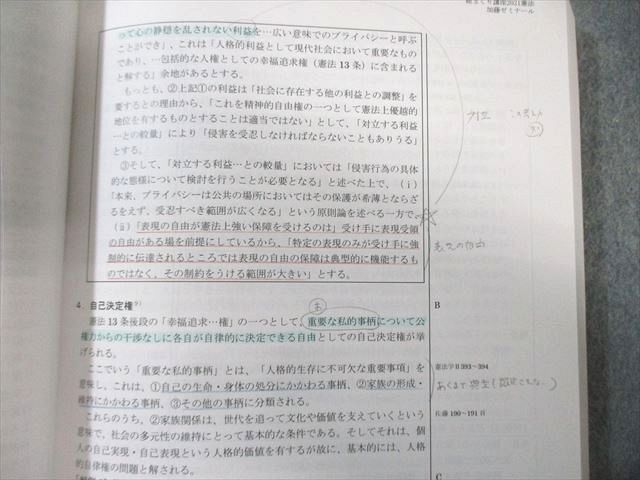 総まくり講座2021憲法
加藤ゼミナール
って心の静穏を乱されない利益を…広い意味でのプライバシーと呼ぶ
ことができ」、これは「人格的利益として現代社会において重要なもの
であり、…包括的な人権としての幸福追求権（憲法 13 条）に含まれる
と解する」余地があるとする。
もっとも、②上記①の利益は「社会に存在する他の利益との調整」を
要するとの理由から、「これを精神的自由権の一つとして憲法上優越的
地位を有するものとすることは適当ではない」として、「対立する利益
…との較量」により「侵害を受忍しなければならないこともありうる」
とする。
③そして、「対立する利益…との較量」においては「侵害行為の具体
的な態様について検討を行うことが必要となる」と述べた上で、（ⅰ）
「本来、プライバシーは公共の場所においてはその保護が希薄とならざ
るをえず、受忍すべき範囲が広くなる」という原則論を述べる一方で、
（ⅱ）「表現の自由が憲法上強い保障を受けるのは」受け手に表現受領
の自由がある場を前提にしているから、「特定の表現のみが受け手に強
制的に伝達されるところでは表現の自由の保障は典型的に機能するも
のではなく、その制約をうける範囲が大きい」とする。
4. 自己決定権9）
B
憲法 13 条後段の「幸福追求…権」の一つとして、重要な私的事柄について公
権力からの干渉なしに各自が自律的に決定できる自由としての自己決定権が
挙げられる。
ここでいう「重要な私的事柄」とは、「人格的生存に不可欠な重要事項」を
憲法学Ⅱ393～394
意味し、これは、①自己の生命・身体の処分にかかわる事柄、②家族の形成・
維持にかかわる事柄、③その他の事柄に分類される。
これらのうち、②家族関係は、世代を追って文化や価値を支えていくという
佐藤 190～191 頁
意味で、社会の多元性の維持にとって基本的な条件である。そしてそれは、個
人の自己実現・自己表現という人格的価値を有するが故に、基本的には、人格
的自律権の問題と解される。
C